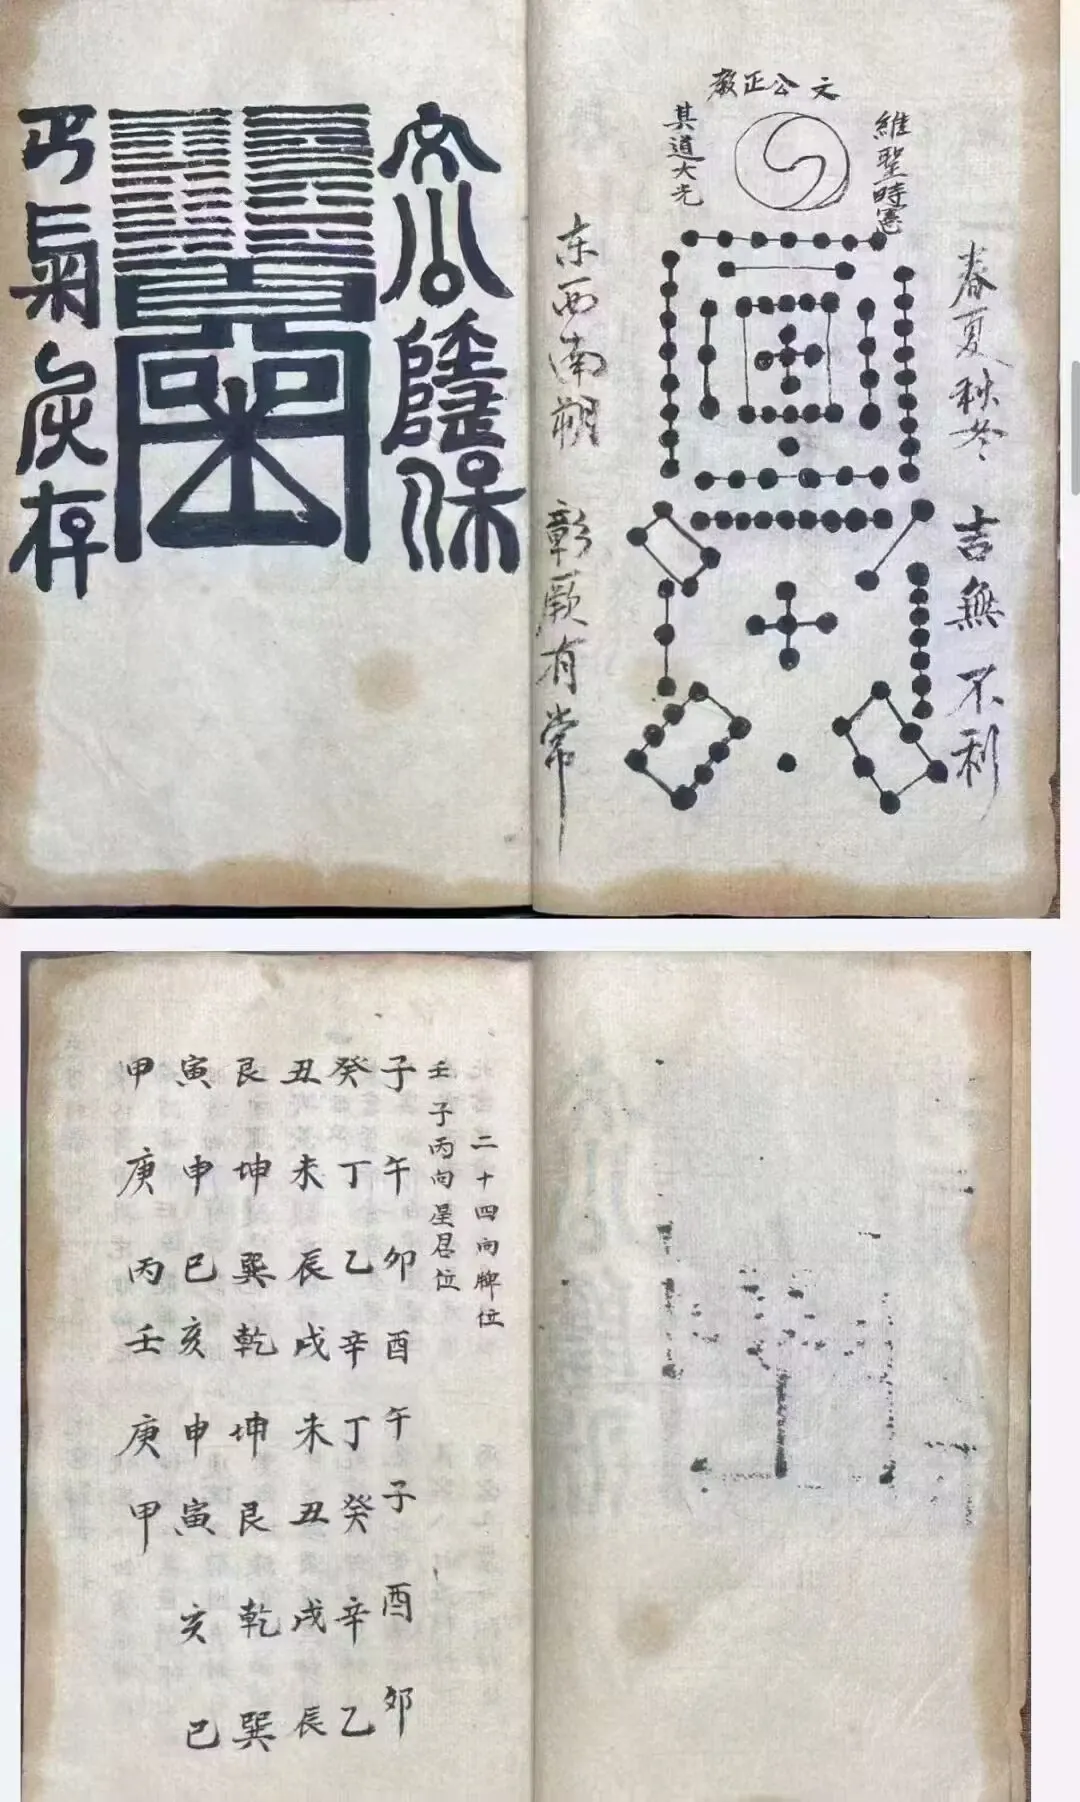 文公正教
維聖時憲
其道大光
春夏秋冬 吉無不利
东西南朔 彰厥有常
文公保
氣灰存
二十四向牌位
壬子丙向星居位
子午卯酉午子酉卯
癸丁乙辛丁癸辛乙
丑未辰戌未丑戌辰
艮坤巽乾坤艮乾巽
寅申巳亥申寅亥巳
甲庚丙壬庚甲